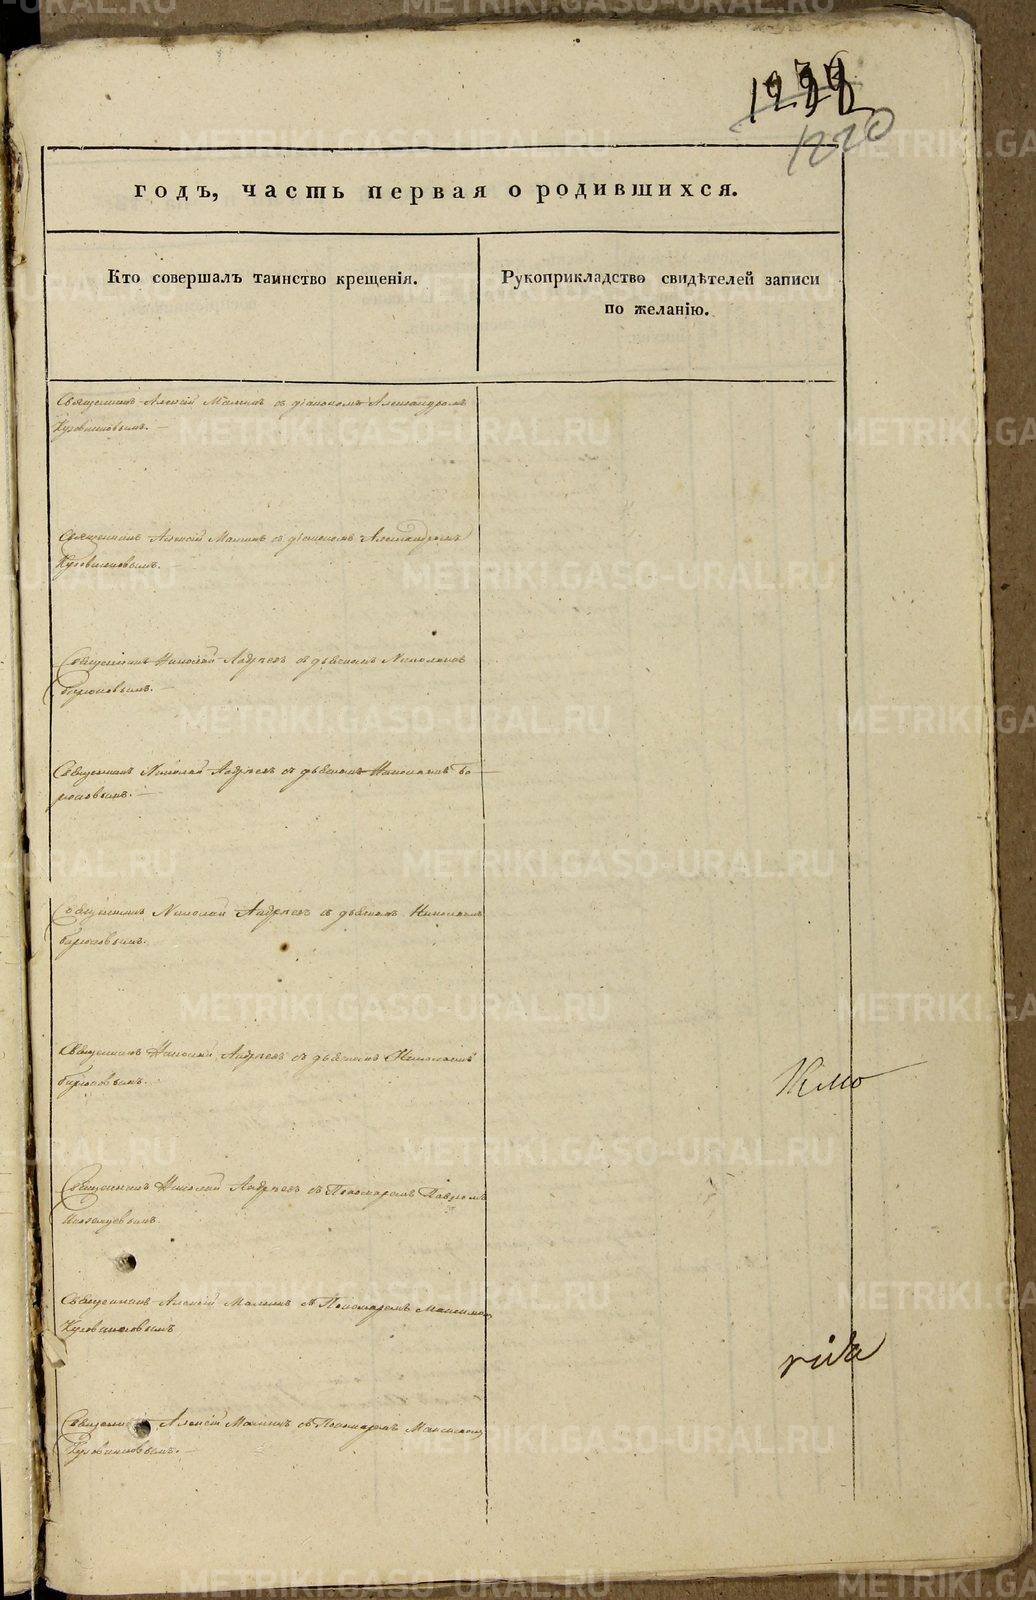 1220
годъ, часть первая о родившихся.
Кто совершалъ таинство крещенія.
Рукоприкладство свидѣтелей записи
по желанію.
Священникъ Алексій Маминъ съ діакономъ Александромъ
Кузовниковымъ.
Священникъ Алексій Маминъ съ діакономъ Александромъ
Кузовниковымъ.
Священникъ Николай Андреевъ съ дьячкомъ Николаемъ
Бирюковымъ.
Священникъ Николай Андреевъ съ дьячкомъ Николаемъ Би-
рюковымъ.
Священникъ Николай Андреевъ съ дьячкомъ Николаемъ
Бирюковымъ.
Священникъ Николай Андреевъ съ дьячкомъ Николаемъ
Бирюковымъ.
Священникъ Николай Андреевъ съ Пономаремъ Павломъ
Священникъ Алексій Маминъ съ Пономаремъ Максимомъ
Кузовниковымъ
Священникъ Алексій Маминъ съ Пономаремъ Максимомъ
Кузовниковымъ.
METRIKI.GASO-URAL.RU